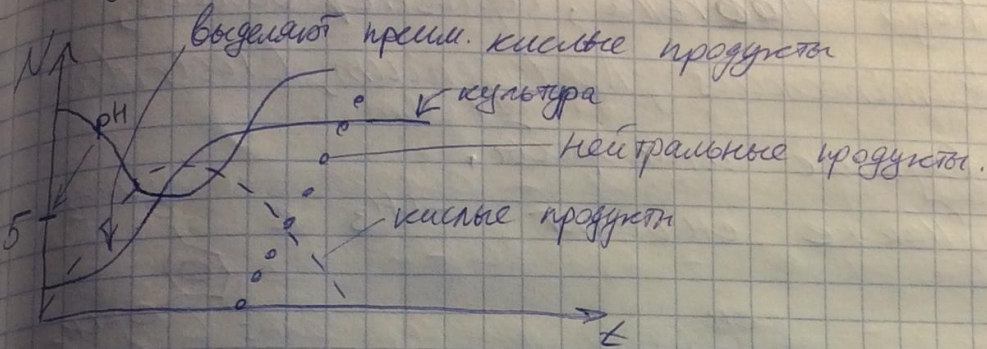 выделяют преим. кислые продукты
N
pH
культура
нейтральные продукты.
5
кислые продукты
t